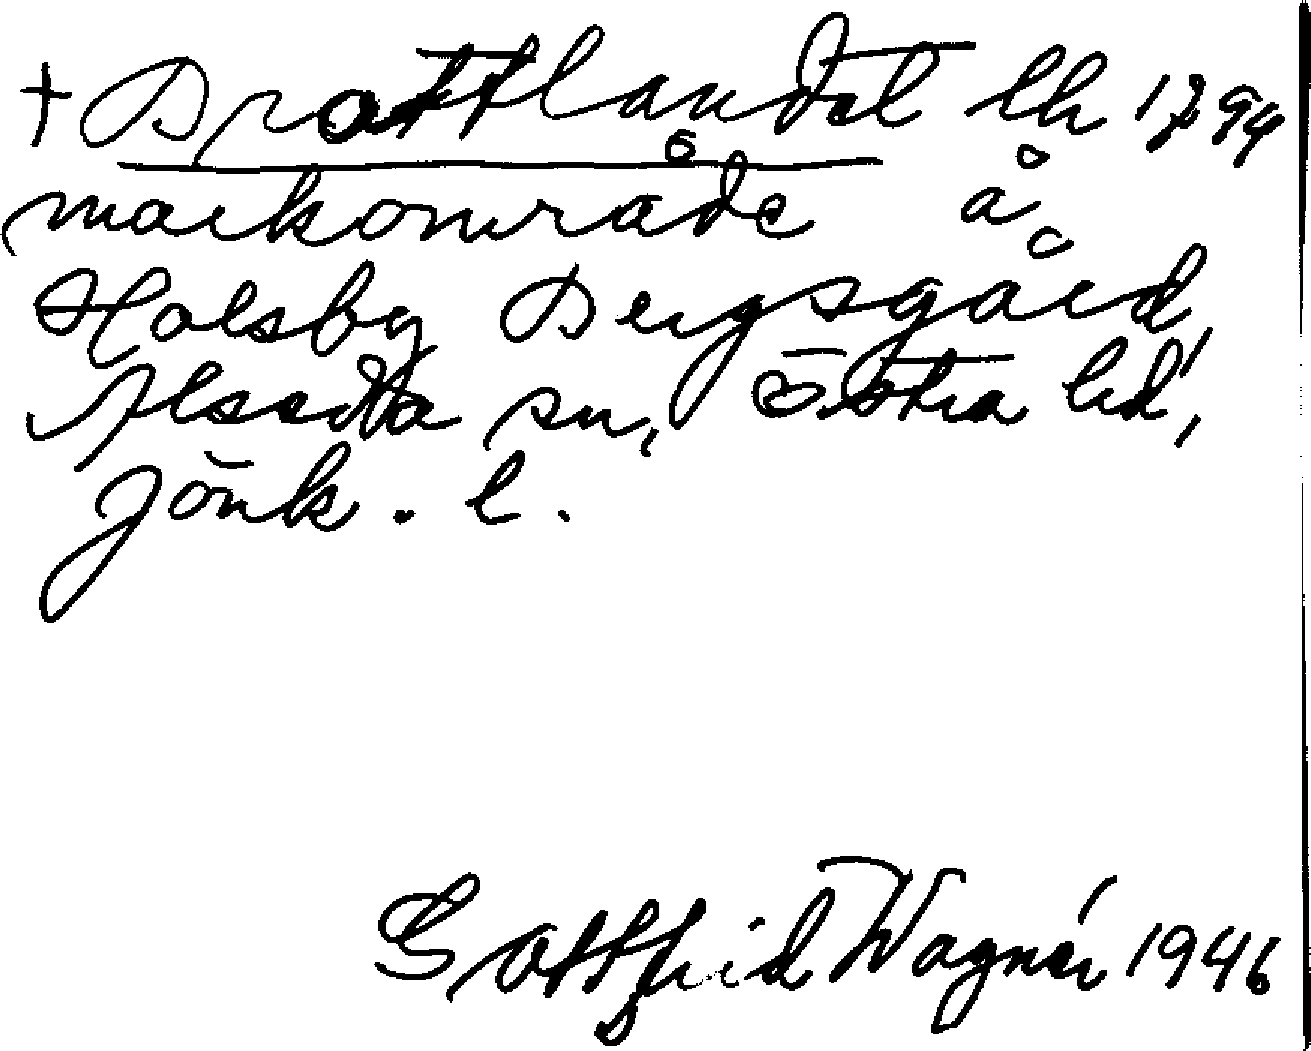 † Brottlandet lh 1794
markområde å
Holsby Bergsgård,
Alseda sn, Östra hd,
Jönk. l.
Gottfrid Wagnér 1946